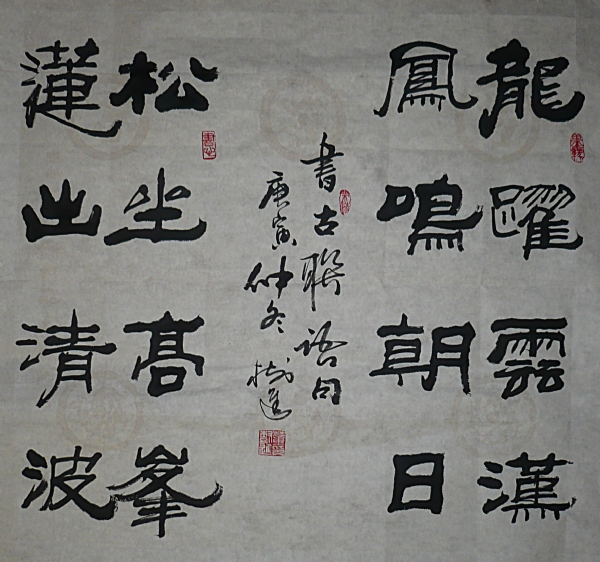 龍躍雲漢
鳳鳴朝日
書古聯語句
庚寅仲冬樹進
松坐髙峯
蓮出清波